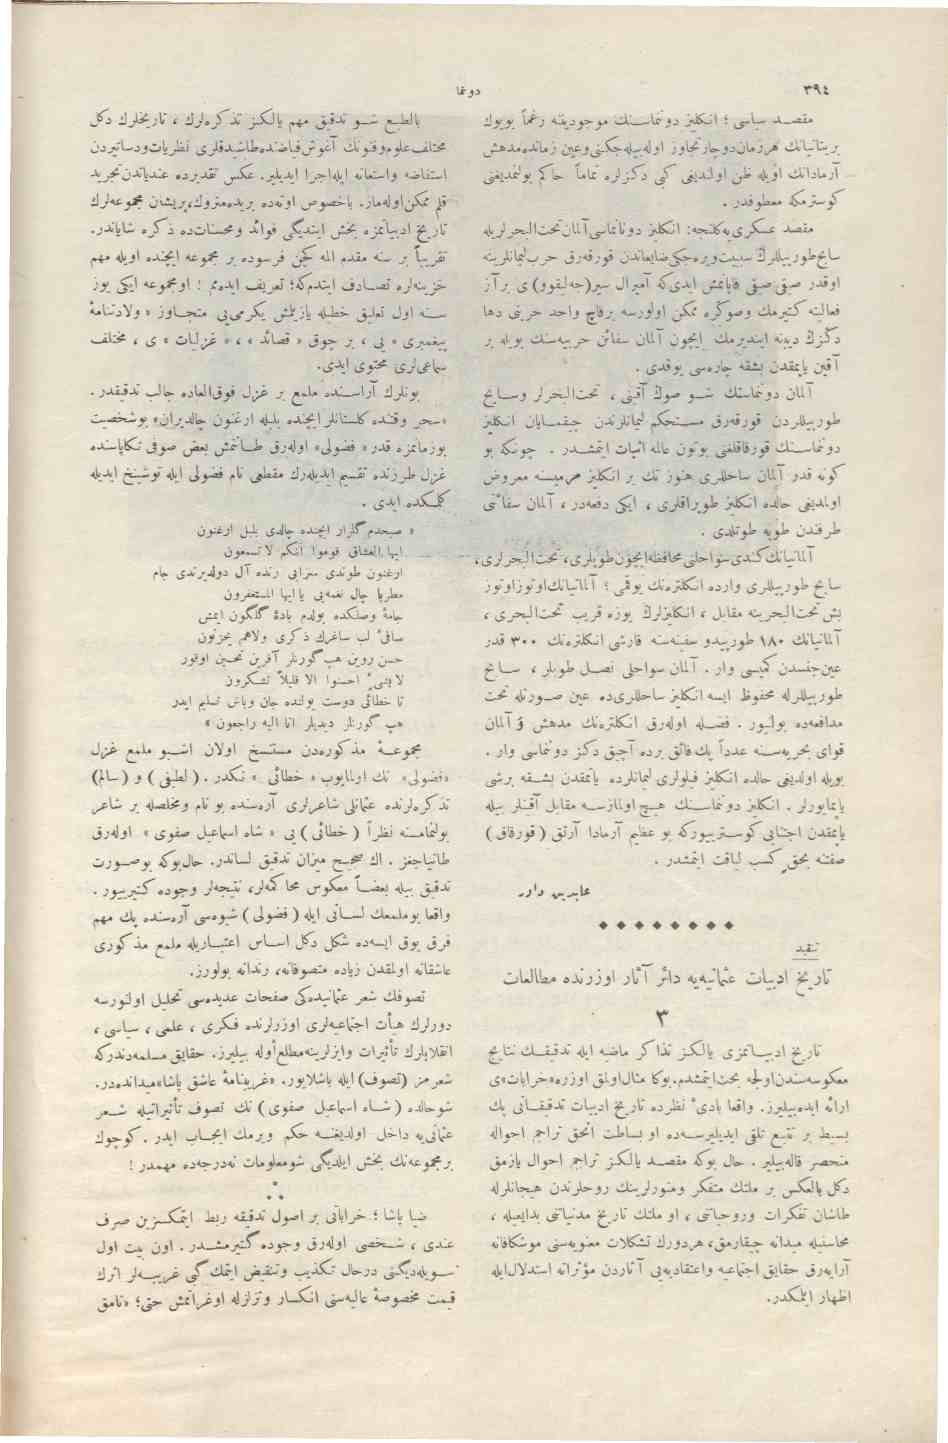 ٣٩٤
دونما
مقصد سیاسی ؛ انكلیز دونماسنك موجودیتنه رغماً بویوك
بریتانیانك هرزمان دوچار تجاوز اوله بیله جكنی وعین زمانده مدهش
آرمادانك اویله ظن اولندیغی كبی دكزلره تماماً حاكم بولنمدیغنی
كوسترمكه معطوفدر .
مقصد عسكری یه كلنجه : انكلیز دونانماسی آلمان تحت البحرلریله
سابح طورپیللرك سببیت ویره جكی ضایعاتدن قورقه رق حرب لیمانلرینه
اوقدر صیقی صیقی قاپانمش ایدی كه آمیرال سیر (جه لیقوو) ی بر آز
فعالیته كتیرمك وصوكره ممكن اولورسه برقاچ واحد حربنی دها
دكزك دیبنه ایندیرمك ایچون آلمان سفائن حربیه سنك بویله بر
آقین یاپمقدن بشقه چاره سی یوقدی .
آلمان دونماسنك شو صوك آقینی ، تحت البحرلر وسابح
طورپیللردن قورقه رق مستحكم لیمانلرندن چیقمایان انكلیز
دونماسنك قورقاقلغنی بوتون عالمه اثبات ایتمشدر . چونكه بو
كونه قدر آلمان ساحللری هنوز تك بر انكلیز مرمیسنه معروض
اولمدیغی حالده انكلیز طوپراقلری ، ایكی دفعه در ، آلمان سفائنی
طرفندن طوپه طوتلدی .
آلمانیانك كندی سواحلنی محافظه ایچون طوپلری ، تحت البحرلری ،
سابح طورپیللری وارده انكلتره نك یوقمی ؟ آلمانیانك اوتوز اوتوز
بش تحت البحرینه مقابل ، انكلیزلرك یوزه قریب تحت البحری ،
آلمانیانك ١٨٠ طورپیدو سفینه سنه قارشی انكلتره نك ٣٠٠ قدر
عین جنسدن كمیسی وار . آلمان سواحلی نصل طوپلر ، سابح
طورپیللرله محفوظ ایسه انكلیز ساحللری ده عین صورتله تحت
مدافعه ده بولنیور . فضله اوله رق انكلتره نك مدهش و آلمان
قوای بحریه سنه عدداً پك فائق برده آچیق دكز دونماسی وار .
بویله اولدیغی حالده انكلیز فیلولری لیمانلرده یاتمقدن بشقه برشی
یاپمایورلر . انكلیز دونماسنك هیچ اولمازسه مقابل آقینلر بیله
یاپمقدن اجتنابی كوستریورکه بو عظیم آرمادا آرتق ( قورقاق )
صفتنه بحق كسب لیاقت ایتمشدر .
عابدین داور
تنقید
تاریخ ادبیات عثمانیه یه دائر آثار اوزرنده مطالعات
٣
تاریخ ادبیاتمزی یالكز تذاكر ماضیه ایله تدقیقك نتایج
معكوسه سندن اولجه بحث ایتمشدم. بوكا مثال اولمق اوزره «خرابات» ی
ارائه ایده بیلیرز. واقعا بادیٔ نظرده تاریخ ادبیات تدقیقاتی پك
بسیط بر تتبع تلقی ایدیلیرسه ده او بساطت انجق تراجم احواله
منحصر قاله بیلیر . حال بوكه مقصد یالكز تراجم احوال یازمق
دكل بالعكس بر ملتك متفكر ومنورلرینك روحلرندن هیجانلرله
طاشان تفكرات وروحیاتنی ، او ملتك تاریخ مدنیاتنی بدایعیله ،
محاسنیله میدانه چیقارمق، هردورك تشكلات معنویه سنی موشكافانه
آرایه رق حقایق اجتماعیه واعتقادیه یی آثاردن مؤثراته استدلال ایله
اظهار ایلمكدر.
بالطبع شو تدقیق مهم یالكز تذكره لرك ، تاریخلرك دكل
مختلف علوم وفنونك آغوش فیاضنده طاشیدقلری نظریات ودساتیردن
استفاضه واستعانه ایله اجرا ایدیلیر. عكس تقدیرده عندیاتدن تجرید
قلم ممكن اوله ماز. باخصوص اوته ده بریده متروك، پریشان مجموعه لرك
تاریخ ادبیاتمزه بخش ایتدیگی فوائد ومحسنات ده ذكره شایاندر.
تقریباً بر سنه مقدم المه كچن فرسوده بر مجموعه ایچنده اویله مهم
خزینه لره تصادف ایتدم كه؛ تعریف ایده مم ! او مجموعه ایكی یوز
سنه اول تعلیق خطیله یازیلمش یكرمی یی متجاوز « ولادتنامهٔ
پیغمبری » یی ، بر چوق « قصائد » ، « غزلیات » ی ، مختلف
سماعی لری محتوی ایدی.
بونلرك آراسنده ملمع بر غزل فوق العاده جالب تدقیقدر .
«سحر وقتنده كلستانلر ایچنده بلبله ارغنون چالدیران» بوشخصیت
بوزمانمزه قدر « فضولی» اوله رق طانتمش بعض صوفی تكایاسنده
غزل طرزنده تقسیم ایدیله رك مقطعی نام فضولی ایله توشیح ایدیله
كلمكده ایدی .
« صبحدم گلزار ایچنده چالدی بلبل ارغنون
ایها العشاق قوموا انكم لا تسمعون
ارغنون طوتدی شرابی رنده آل دولدیرتدی جام
مطربا چال نغمه یی یا ایها المستغفرون
جامهٔ وصلكده بولدم بادهٔ گلگون ایمش
ساقیٔ لب ساغرك ذكری ولاهم یحزنون
حسن روین هپ گورنلر آفرین تحسین اوقور
لا فتی احسنوا الا قلیلاً تشكرون
تا خطائی دوست یولنده جان وباش تسلیم ایدر
هپ گورنلر دیدیلر انا الیه راجعون »
مجموعهٔ مذكوره دن مستنسخ اولان اشبو ملمع غزل
«فضولی» نك اولمایوب « خطائی » نكدر . ( لطیفی ) و ( سالم)
تذكره لرنده عثمانلی شاعرلری آره سنده بو نام ومخلصله بر شاعر
بولنمامسنه نظراً ( خطائی ) یی « شاه اسماعیل صفوی » اوله رق
طانیاجغز . اك صحیح میزان تدقیق لساندر. حال بوكه بو صورت
تدقیق بیله بعضاً معكوس محاكمه لر، نتیجه لر وجوده كتیریور .
واقعا بو ملمعك لسانی ایله ( فضولی ) شیوه سی آره سنده پك مهم
فرق یوق ایسه ده شكل دكل اساس اعتباریله ملمع مذكوری
عاشقانه اولمقدن زیاده متصوفانه، رندانه بولورز.
تصوفك شعر عثمانیده كی صفحات عدیده سی تحلیل اولنورسه
دورلرك هیأت اجتماعیه لری اوزرلرنده فكری ، علمی ، سیاسی ،
انقلابلرك تأثیرات وایزلرینه مطلع اوله بیلیرز. حقایق مسلمه دندركه
شعرمز (تصوف) ایله باشلایور. «غریبنامهٔ عاشق پاشا» میدانده در.
شوحالده ( شاه اسماعیل صفوی ) نك تصوف تأثیراتیله شعر
عثمانی یه داخل اولدیغنه حكم ویرمك ایجاب ایدر . كوچوك
بر مجموعه نك بخش ایلدیگی شو معلومات نه درجه ده مهمدر !
ضیا پاشا ؛ خراباتی بر اصول تدقیقه ربط ایتمكسزین صرف
عندی ، شخصی اوله رق وجوده گتیرمشدر . اون بیت اول
سویله دیگنی درحال تكذیب وتنقیض ایتمك گبی غریبه لر اثرك
قیمت مخصوصهٔ عالیه سنی انكسار وتزلزله اوغراتمش حتی؛ «نامق